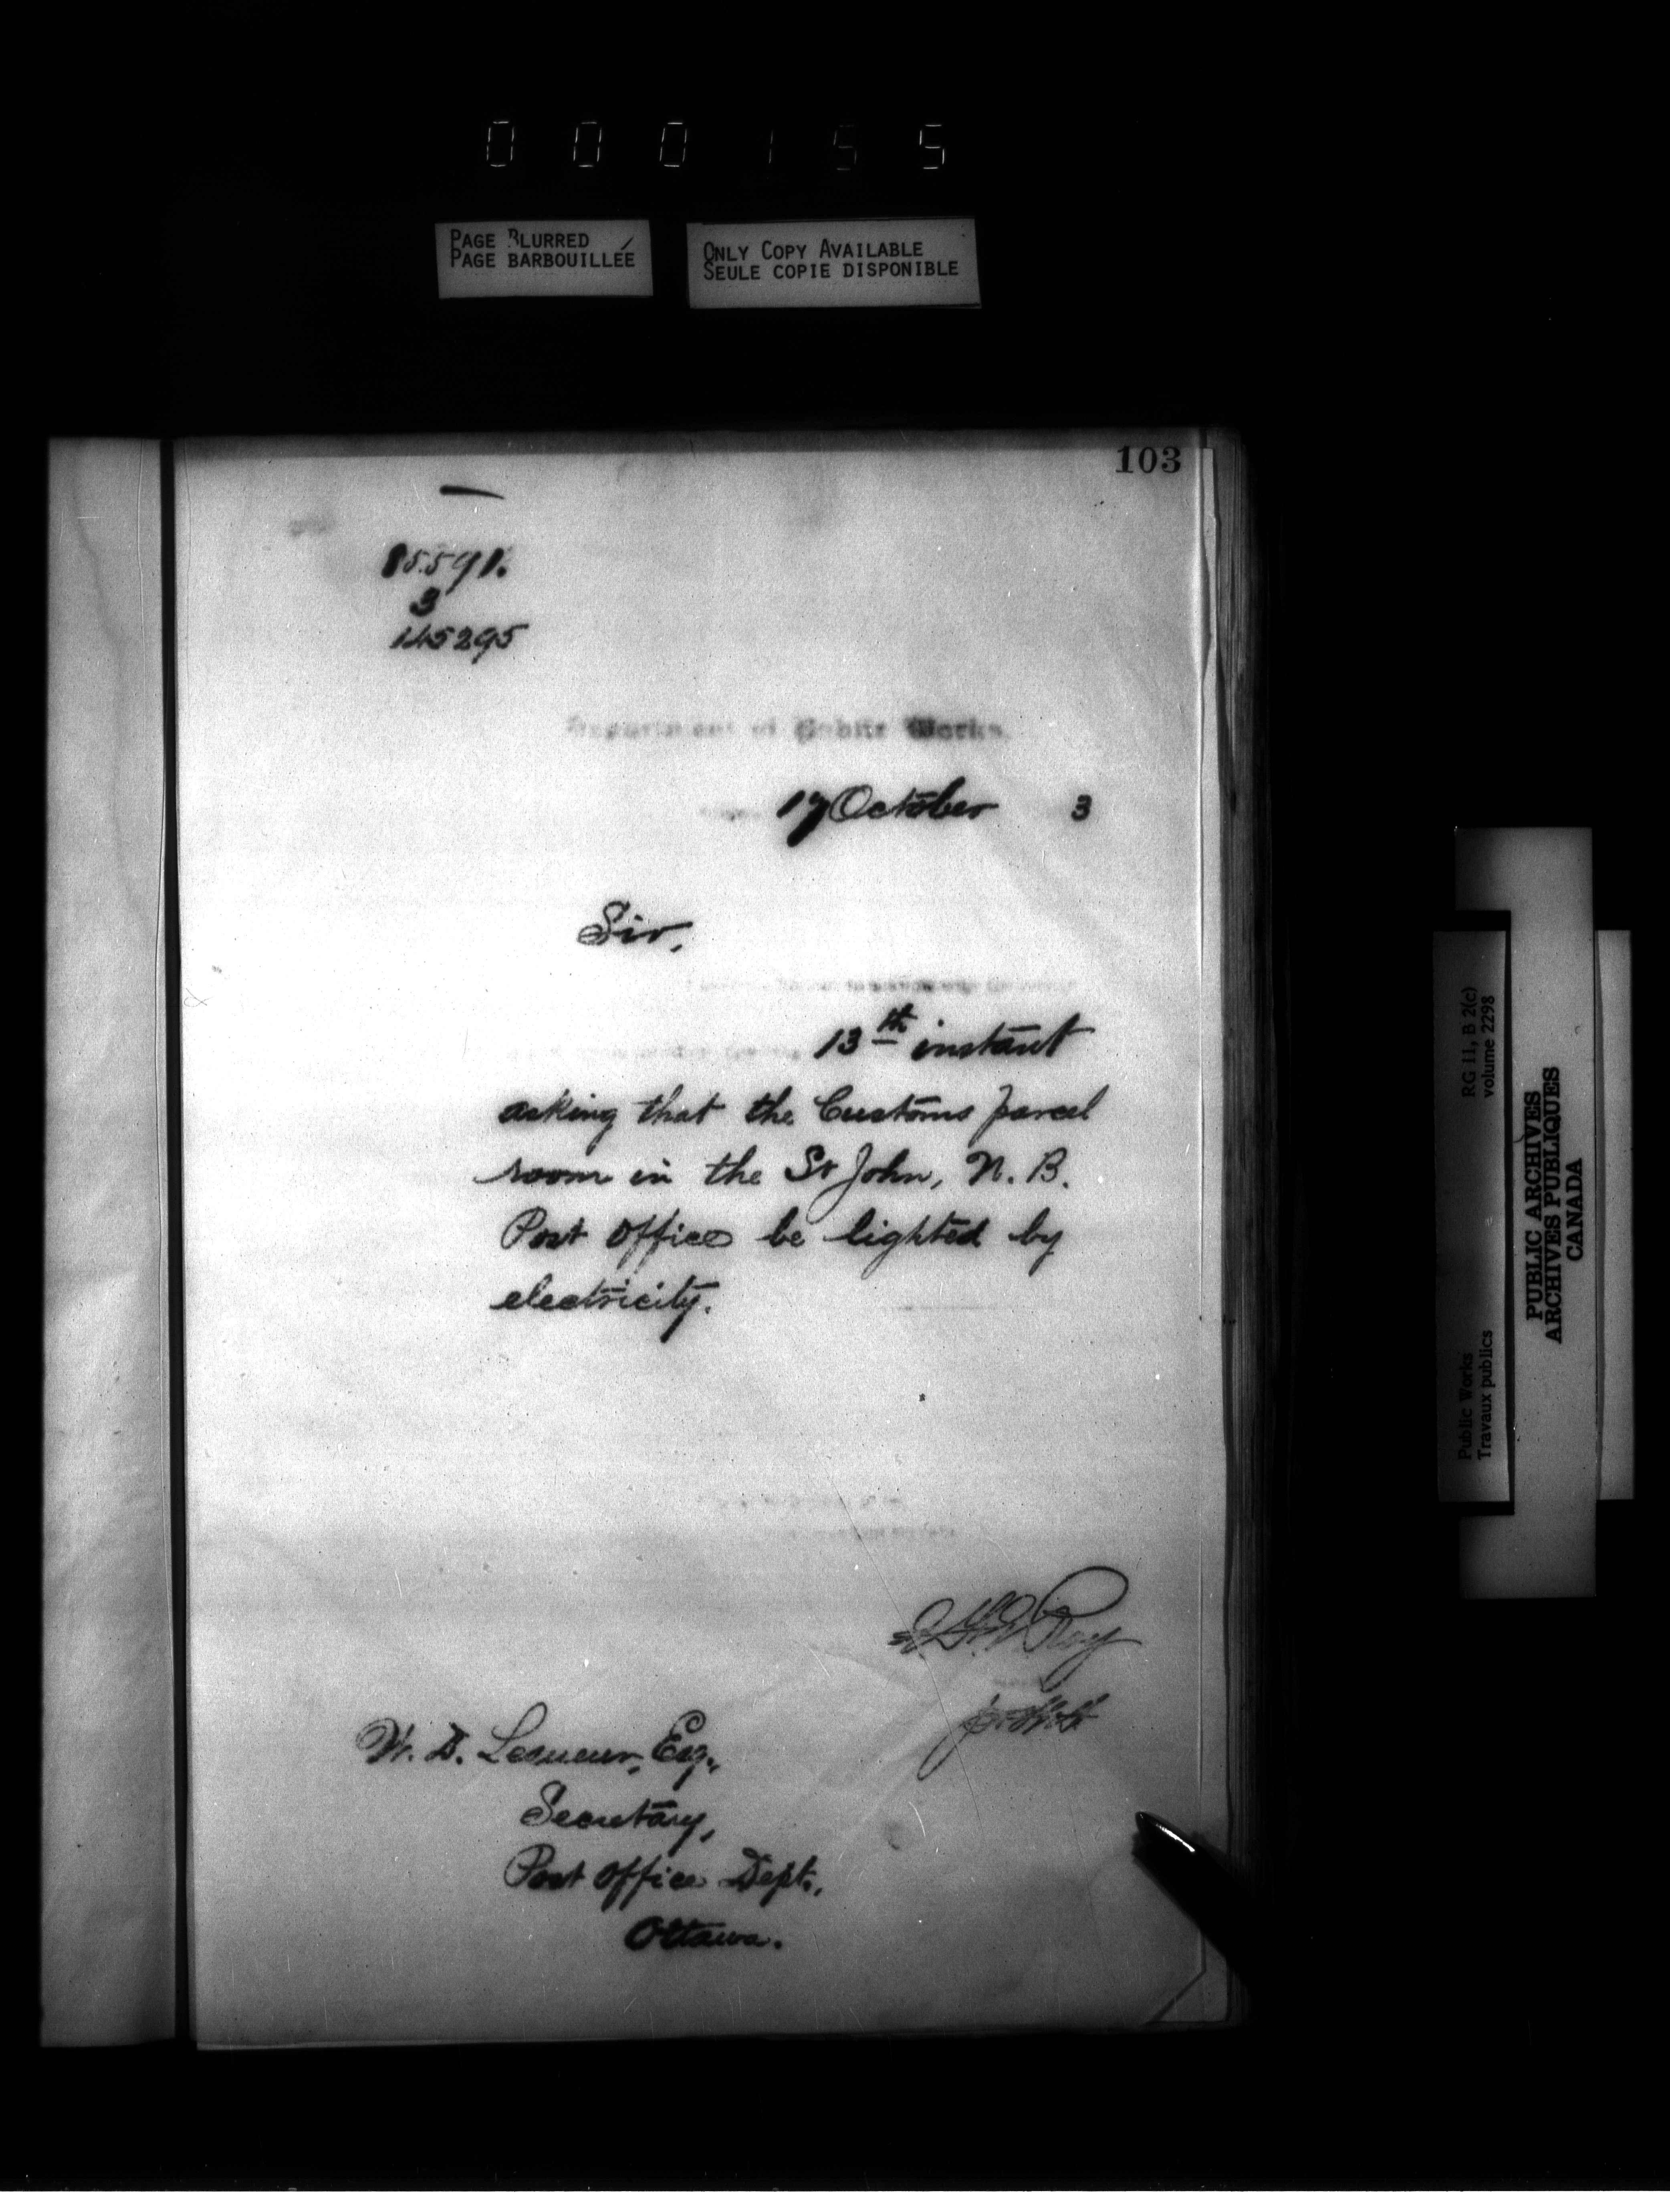 000155
PAGE BLURRED
PAGE BARBOUILLÉE
ONLY COPY AVAILABLE
SEULE COPIE DISPONIBLE
103
85591.
3
145295
Department of Public Works.
17 October 3
Sir,
13th instant
asking that the Customs parcel
room in the St John, N. B.
Post Office be lighted by
electricity.
Roy
W. D. Lesueur, Esq.,
Secretary,
Post Office Dept.,
Ottawa.
Public Works
Travaux publics
RG 11, B 2(c)
volume 2298
PUBLIC ARCHIVES
ARCHIVES PUBLIQUES
CANADA